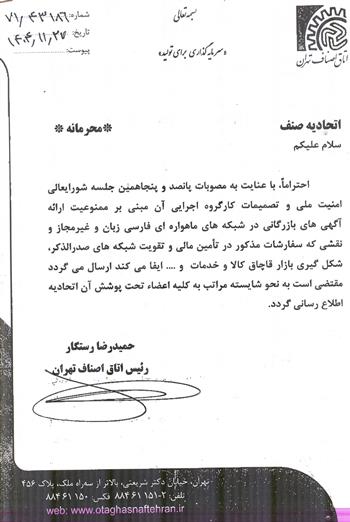 بسمه تعالی
شماره: ۷۱/۰۴۳۱۸۶
تاریخ: ۱۴۰۴/۱۱/۲۷
پیوست:
«سرمایه گذاری برای تولید»
اتاق اصناف تهران
اتحادیه صنف
*محرمانه*
سلام علیکم
احتراماً، با عنایت به مصوبات پانصد و پنجاهمین جلسه شورایعالی
امنیت ملی و تصمیمات کارگروه اجرایی آن مبنی بر ممنوعیت ارائه
آگهی های بازرگانی در شبکه های ماهواره ای فارسی زبان و غیرمجاز و
نقشی که سفارشات مذکور در تأمین مالی و تقویت شبکه های صدرالذکر،
شکل گیری بازار قاچاق کالا و خدمات و .... ایفا می کند ارسال می گردد
مقتضی است به نحو شایسته مراتب به کلیه اعضاء تحت پوشش آن اتحادیه
اطلاع رسانی گردد.
حمیدرضا رستگار
رئیس اتاق اصناف تهران
تهران، خیابان دکتر شریعتی، بالاتر از سه‌راه ملک، پلاک ۴۵۶
تلفن: ۲-۸۸۴۶۱۱۵۱ فکس: ۸۸۴۶۱۱۵۰
web: www.otaghasnaftehran.ir